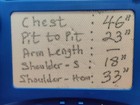 Chest : 46"
Pit to Pit : 23"
Arm Length : —
Shoulder - S : 18"
Shoulder - Hem : 33"